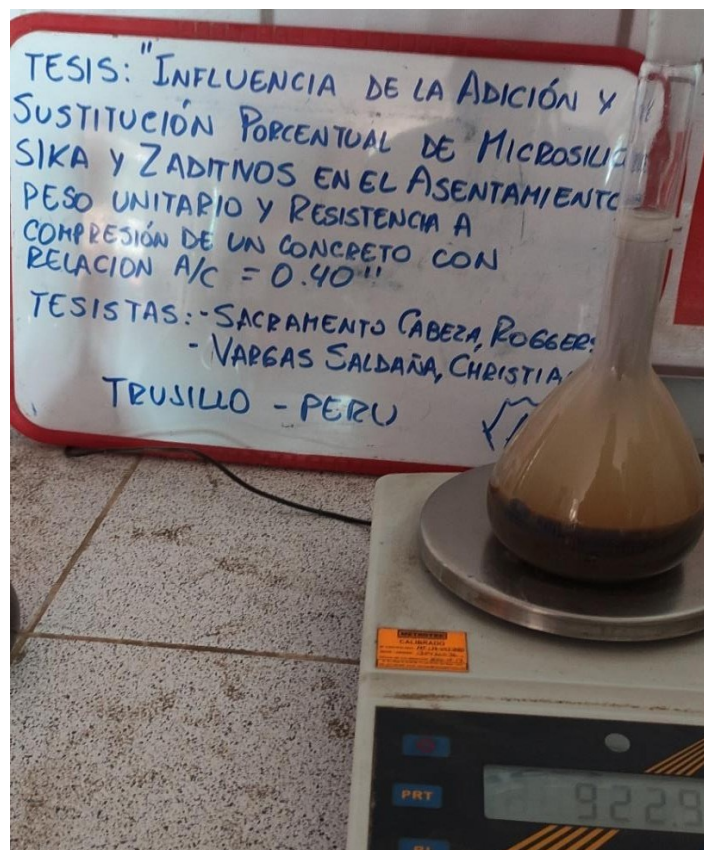 TESIS: "INFLUENCIA DE LA ADICIÓN Y
SUSTITUCIÓN PORCENTUAL DE MICROSILIC
SIKA Y ZADITIVOS EN EL ASENTAMIENTO
PESO UNITARIO Y RESISTENCIA A
COMPRESIÓN DE UN CONCRETO CON
RELACION A/C = 0.40"
TESISTAS: - SACRAMENTO CABEZA, ROGGER
- VARGAS SALDAÑA, CHRISTIA
TRUJILLO - PERU
CALIBRADO
PRT
922.9